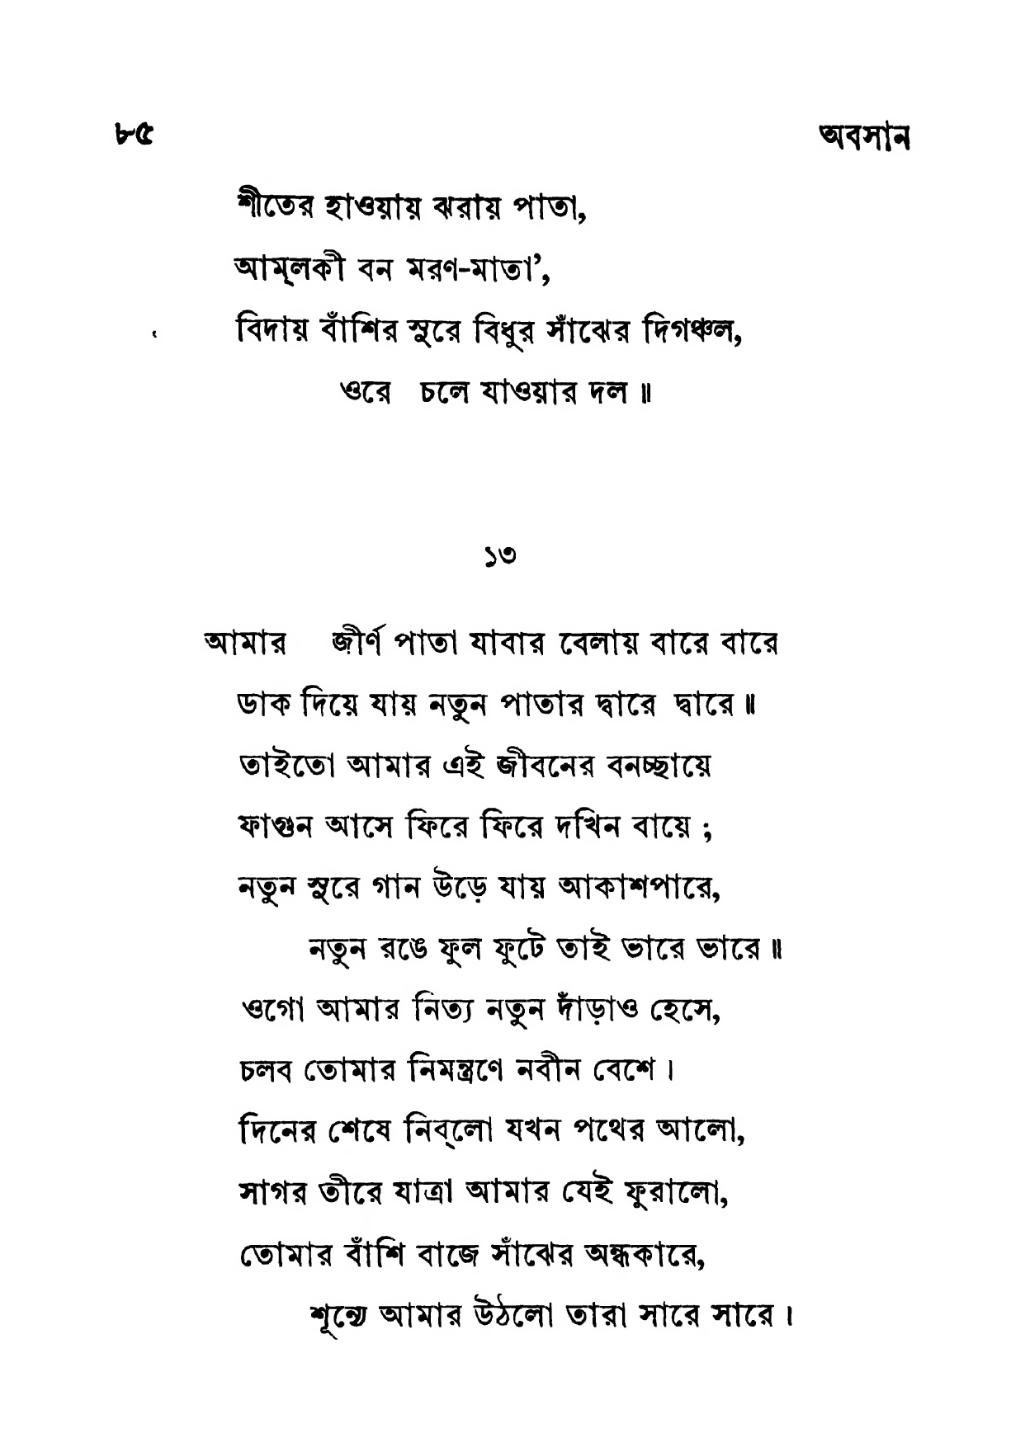 ৮৫ অবসান
শীতের হাওয়ায় ঝরায় পাতা,
আম্‌লকী বন মরণ-মাতা’,
বিদায় বাঁশির সুরে বিধুর সাঁঝের দিগঞ্চল,
ওরে চলে যাওয়ার দল॥
১৩
আমার জীর্ণ পাতা যাবার বেলায় বারে বারে
ডাক দিয়ে যায় নতুন পাতার দ্বারে দ্বারে॥
তাইতো আমার এই জীবনের বনচ্ছায়ে
ফাগুন আসে ফিরে ফিরে দখিন বায়ে ;
নতুন সুরে গান উড়ে যায় আকাশপারে,
নতুন রঙে ফুল ফুটে তাই ভারে ভারে॥
ওগো আমার নিত্য নতুন দাঁড়াও হেসে,
চলব তোমার নিমন্ত্রণে নবীন বেশে।
দিনের শেষে নিব্‌লো যখন পথের আলো,
সাগর তীরে যাত্রা আমার যেই ফুরালো,
তোমার বাঁশি বাজে সাঁঝের অন্ধকারে,
শূন্যে আমার উঠলো তারা সারে সারে।